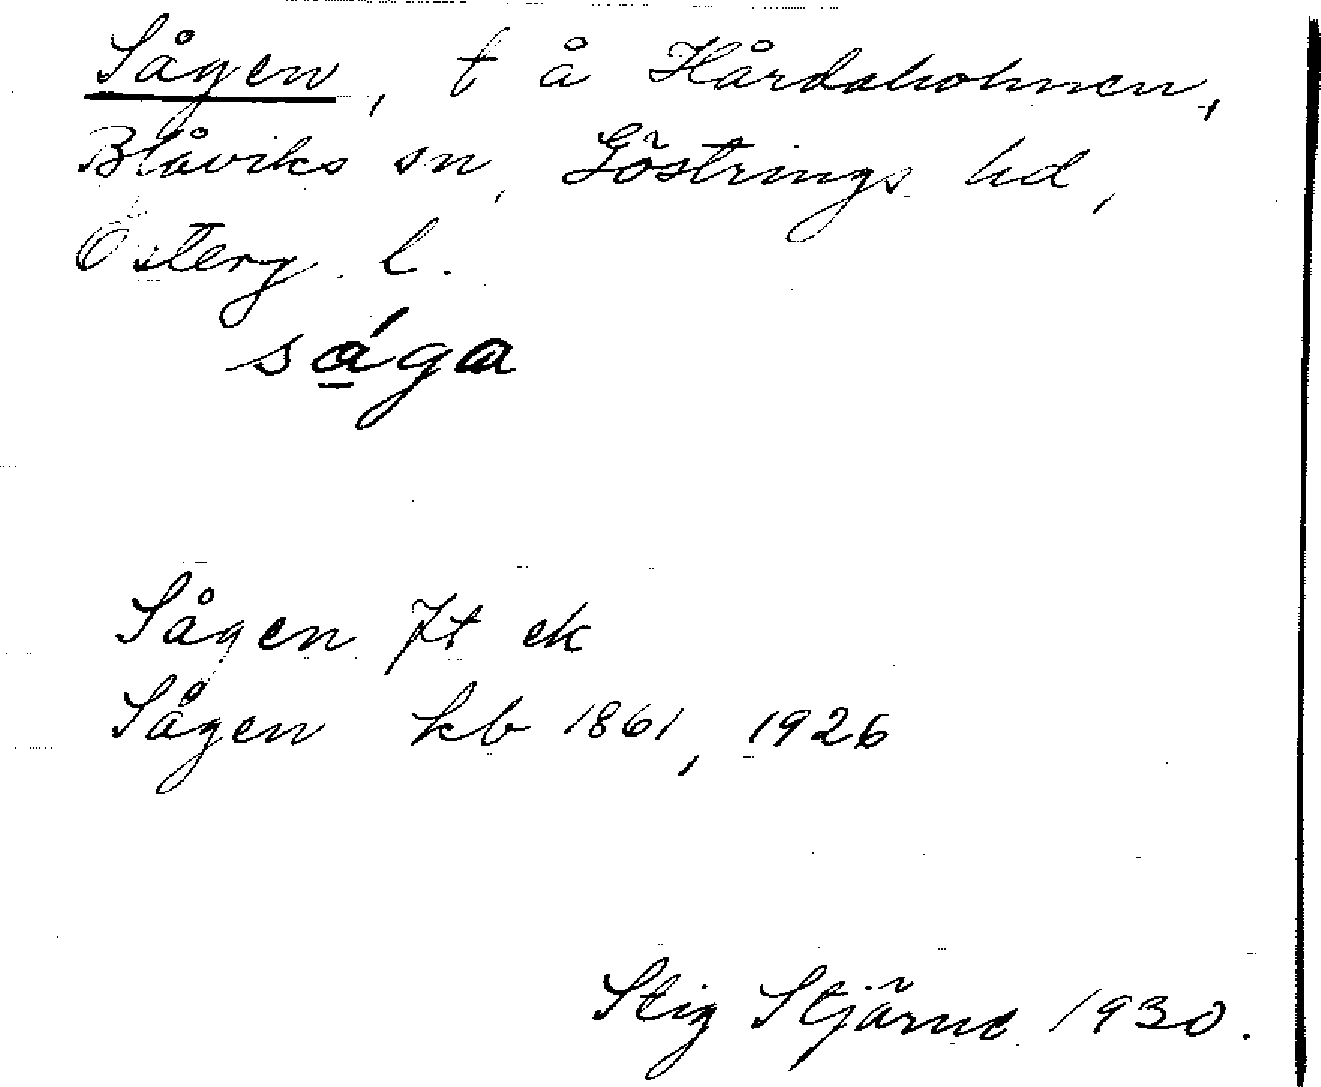 Sågen, t å Hårdaholmen,
Blåviks sn, Göstrings hd,
Österg. l.
sága
Sågen Jt ek
Sågen kb 1861, 1926
Stig Stjärne 1930.